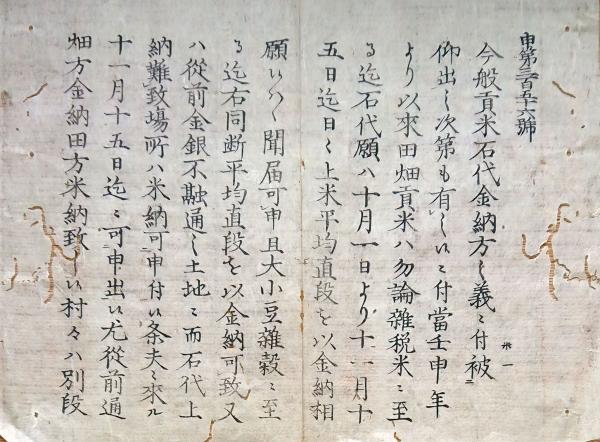 申第三百五十六號
今般貢米石代金納方之義ニ付被
仰出之次第も有之候ニ付當壬申年
より以來田畑貢米ハ勿論雜税米ニ至
る迄石代願八十月一日より十一月十
五日迄日々上米平均直段を以金納相
願候ハヽ聞届可申且大小豆雜穀ニ至
る迄右同断平均直段を以金納可致又
ハ從前金銀不融通之土地ニ而石代上
納難致場所ハ米納可申付候条夫々來ル
十一月十五日迄ニ可申出候尤從前通
畑方金納田方米納致之候村々ハ別段